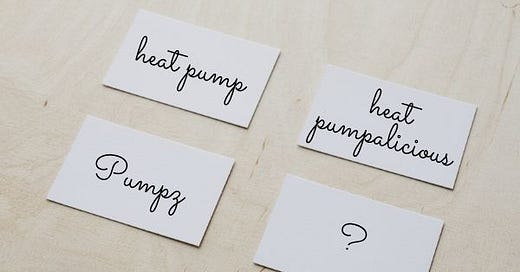 heat pump
heat
pumpalicious
Pumpz
?